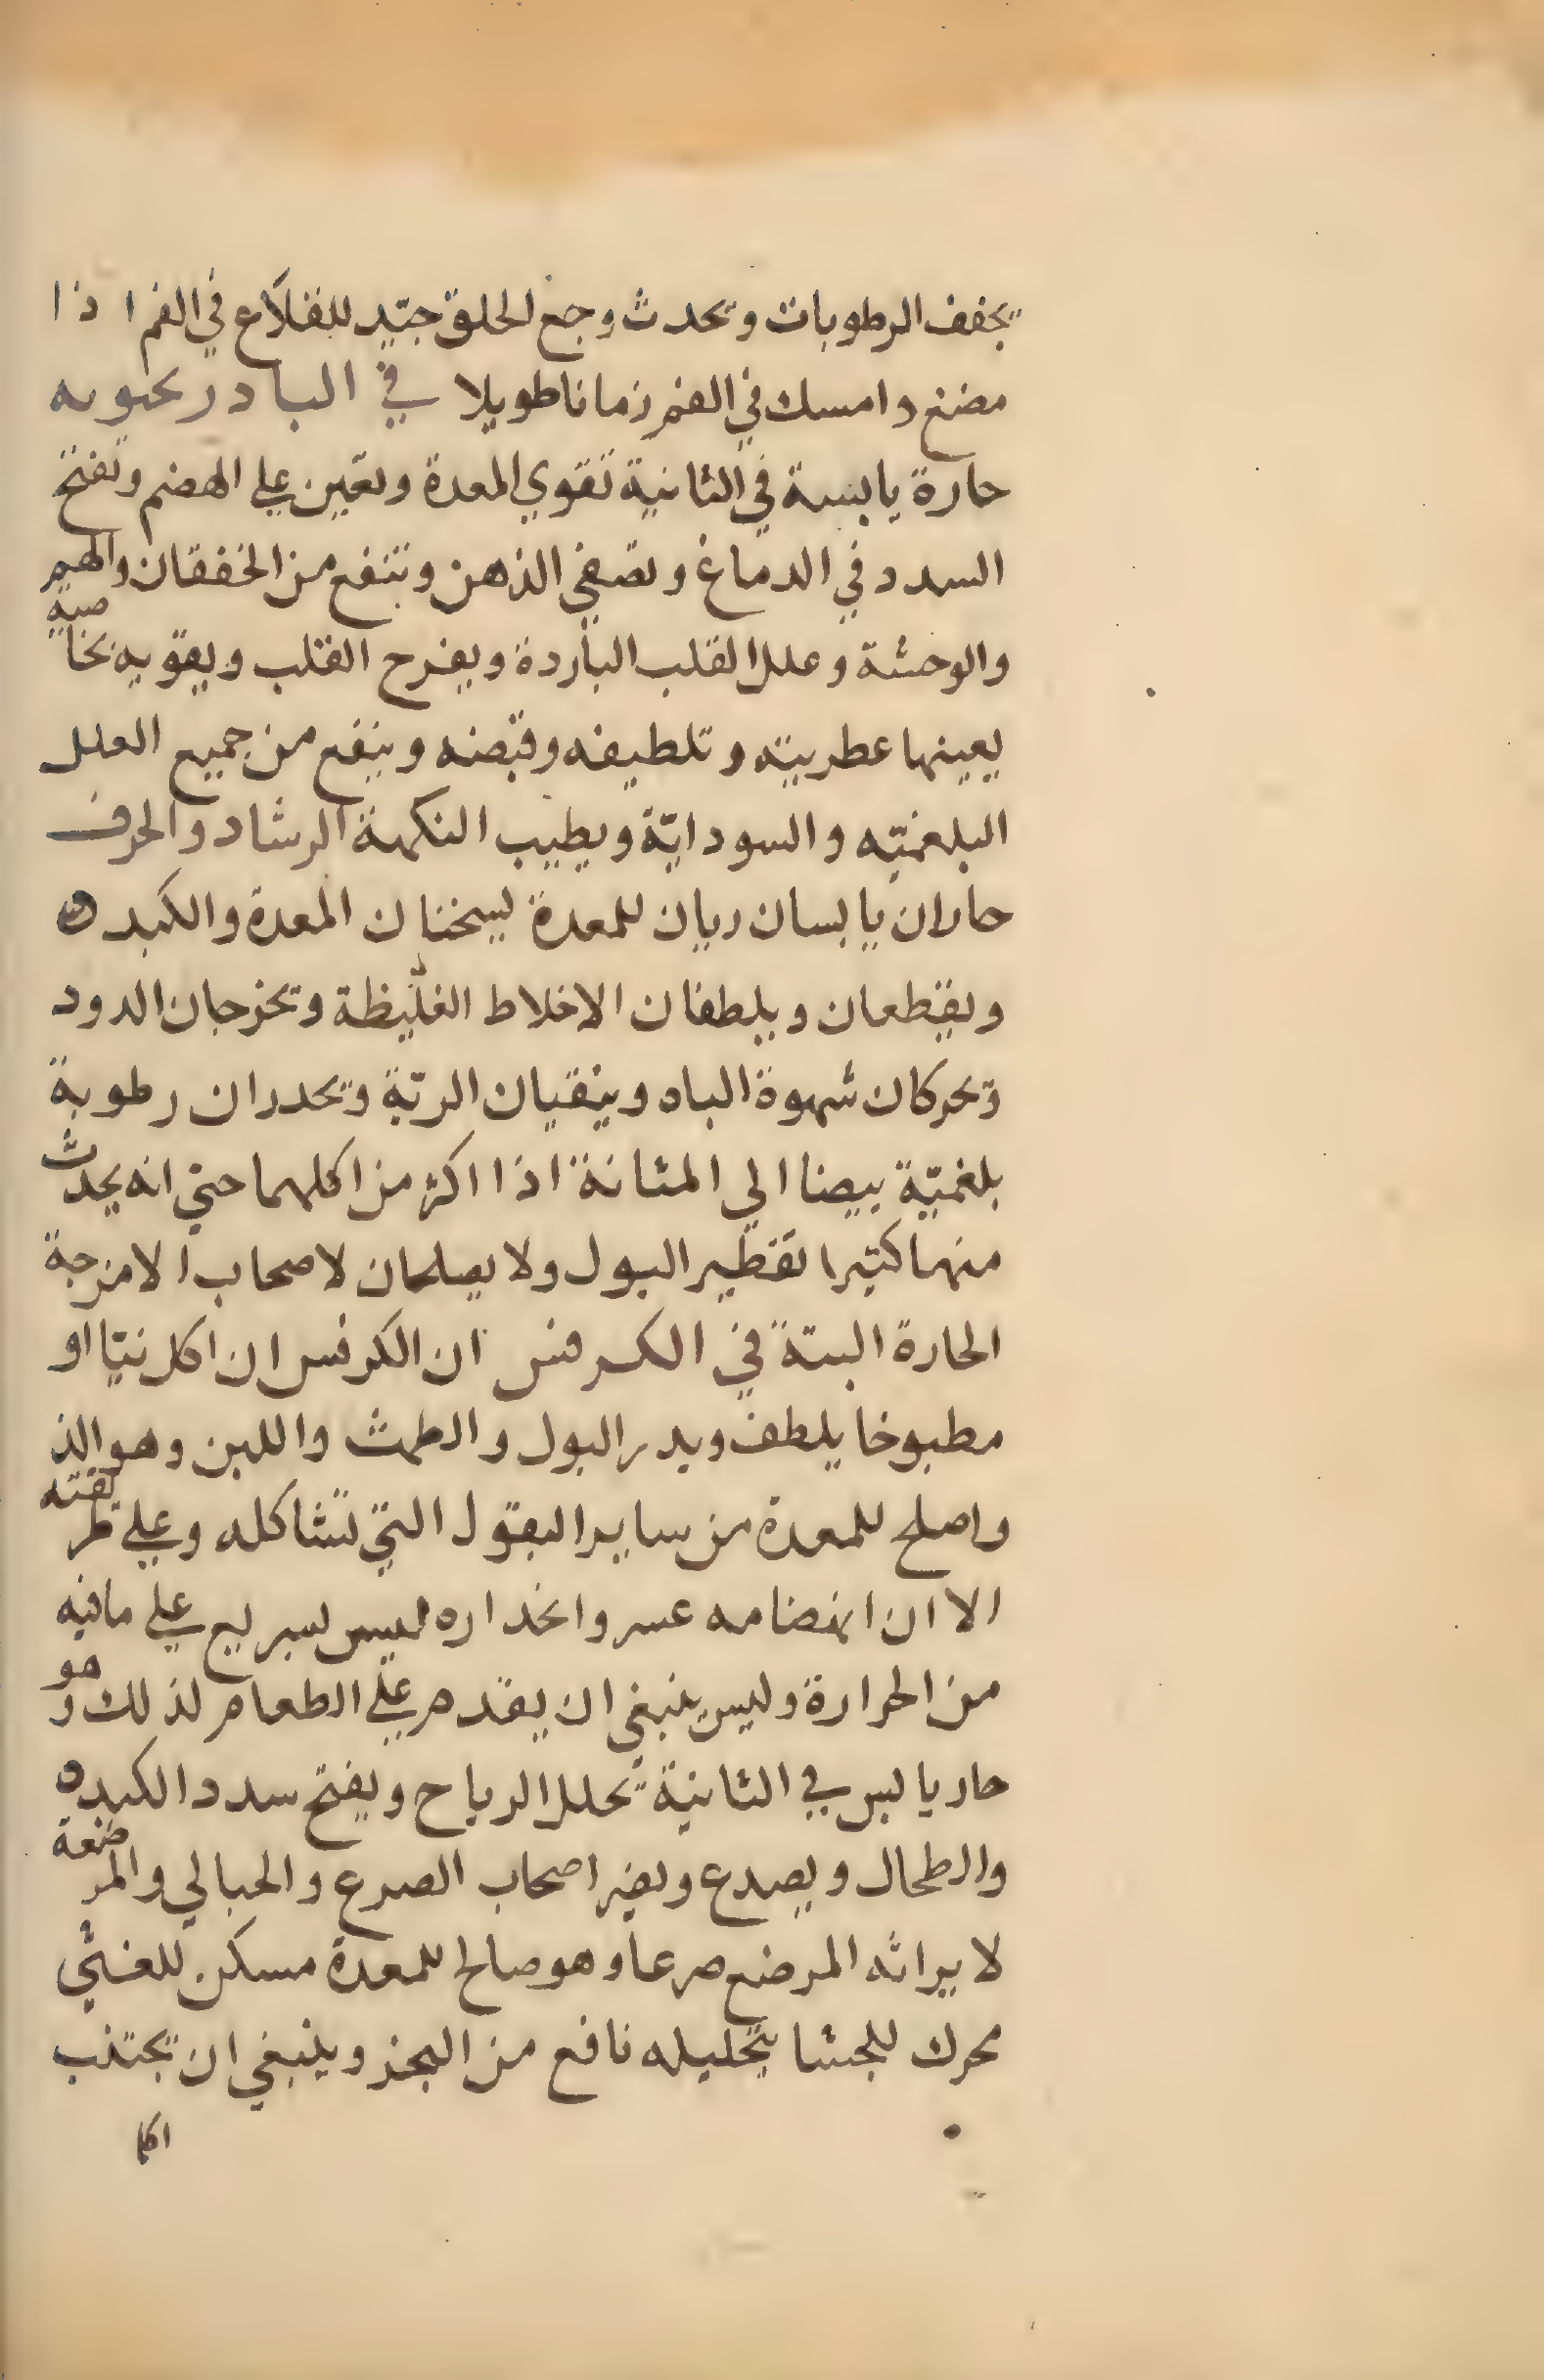 يجفف الرطوبات ويحدث وجع الحلق جيّد للقلاع في الفم اذا
مضغ وامسك في الفم زمانا طويلا في البادرنحبويه
حارة يابسة في الثانية تقوي المعدة وتعين علي الهضم وتفتح
السدد في الدماغ وتصفي الذهن وينفع من الخفقان والهم
والوحشة وعلل القلب الباردة ويفرح القلب ويقويه بخاصية
يعينها عطريته وتلطيفه وقبضه وينفع من جميع العلل
البلغميّه والسودايّة ويطيب النكهة الرشاد والحرف
حاران يابسان رديان للمعدة يسخنان المعدة والكبد
ويقطعان ويلطفان الاخلاط الغليظة ويخرجان الدود
ويحركان شهوة الباه وينقيان الريّة ويحدران رطوبة
بلغميّة بيضا الي المثانة اذا اكثر من اكلهما حتي انه يحدث
منهما كثيرا تقطير البول ولا يصلحان لاصحاب الامزجة
الحارة البتة في الكرفس ان الكرفس ان اكل نيّا او
مطبوخا يلطف ويدر البول والطمث واللبن وهو الذ
واصلح للمعدة من ساير البقول التي تشاكله وعلي
الا ان انهضامه عسر وانحداره ليس بسريع علي مافيه
من الحرارة وليس ينبغي ان يقدم علي الطعام لذلك وهو
حار يابس في الثانية يحلل الرياح ويفتح سدد الكبد
والطحال ويصدع ويضر اصحاب الصرع والحبالي والمرضعة
لا يراثه المرضع صرعا وهو صالح للمعدة مسكن للغثي
محرك للجشا بتحليله نافع من البخر وينبغي ان يجتنب
اكل